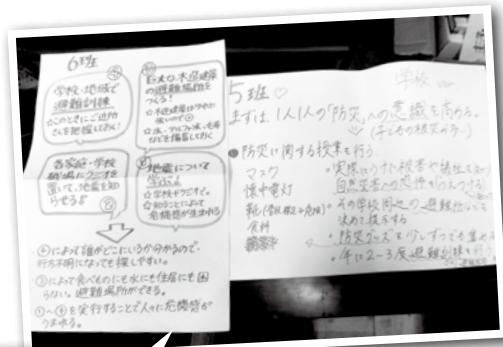 6班
学校・地域で
避難訓練
☆このときにご近所
さんを把握しておく!
巨大な木造建築
の避難場所を
つくる!
☆木造建築は
☆水・アルファ米・毛布
などを備蓄しておく
各家庭・学校
職場にラジオを
置いて、地震を知
らせる♪
地震について
学ぶ!
☆学校や
☆知ることによって
危機感が生まれる
④によって誰がどこにいるか分かるので、
行方不明になっても探しやすい。
③によって食べものにも水にも住居にも困
らない。避難場所ができる。
①~④を実行することで人々に危機感が
うまれる。
学校
5班♡
まずは、1人1人の「防災」への意識を高める。
●防災に関する授業を行う
マスク
懐中電灯
靴
食料
・実際にうけた被害や
自然災害への
・その学校周辺の避難
決めて指示する
・防災グッズを少しずつでも集める
・年に2~3度避難訓練を行う